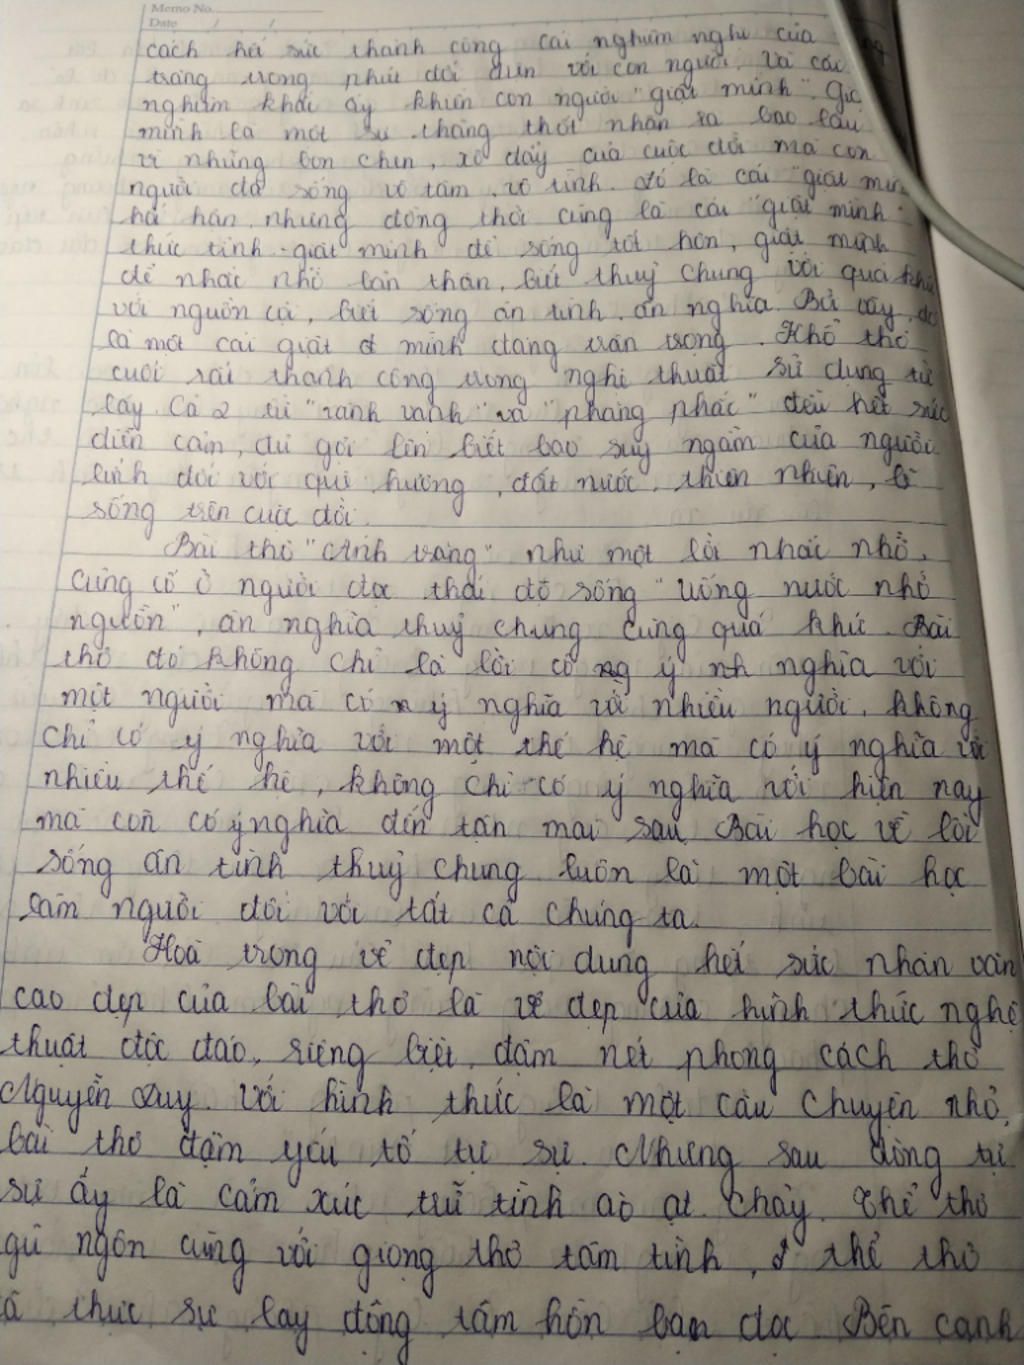 Memo No.
Date / /
cách hết sức thành công cái nghiêm nghị của
trăng trong phút đối diện với con người. Và cái
nghiêm khắc ấy khiến con người "giật mình". Giật
mình là một sự thảng thốt nhận ra bao lâu
vì những bon chen, xô đẩy của cuộc đời mà con
người đã sống vô tâm, vô tình. Đó là cái "giật mình"
hối hận nhưng đồng thời cũng là cái "giật mình"
thức tỉnh - giật mình để sống tốt hơn, giật mình
để nhắc nhở bản thân, biết thuỷ chung với quá khứ
với nguồn cội, biết sống ân tình, ân nghĩa. Bởi vậy, đó
là một cái giật mình đáng trân trọng. Khổ thơ
cuối rất thành công trong nghệ thuật sử dụng từ
láy. Cả 2 từ "vành vạnh" và "phăng phắc" đều hết sức
diễn cảm, đủ gợi lên biết bao suy ngẫm của người
lính đối với quê hương, đất nước, thiên nhiên, lẽ
sống trên cuộc đời.
Bài thơ "Ánh trăng" như một lời nhắc nhở,
củng cố ở người đọc thái độ sống "Uống nước nhớ
nguồn", ân nghĩa thuỷ chung cùng quá khứ. Bài
thơ đó không chỉ là lời có ý nghĩa với
một người mà có ý nghĩa với nhiều người, không
chỉ có ý nghĩa với một thế hệ mà có ý nghĩa với
nhiều thế hệ, không chỉ có ý nghĩa với hiện nay
mà còn có ý nghĩa đến tận mai sau. Bài học về lối
sống ân tình thuỷ chung luôn là một bài học
làm người đối với tất cả chúng ta.
Hoà trong vẻ đẹp nội dung hết sức nhân văn
cao đẹp của bài thơ là vẻ đẹp của hình thức nghệ
thuật độc đáo, riêng biệt, đậm nét phong cách thơ
Nguyễn Duy. Với hình thức là một câu chuyện nhỏ,
bài thơ đậm yếu tố tự sự. Nhưng sau dòng tự
sự ấy là cảm xúc trữ tình ào ạt chảy. Thể thơ
gũ ngôn cùng với giọng thơ tâm tình, thể thơ
ã thực sự lay động tâm hồn bạn đọc. Bên cạnh